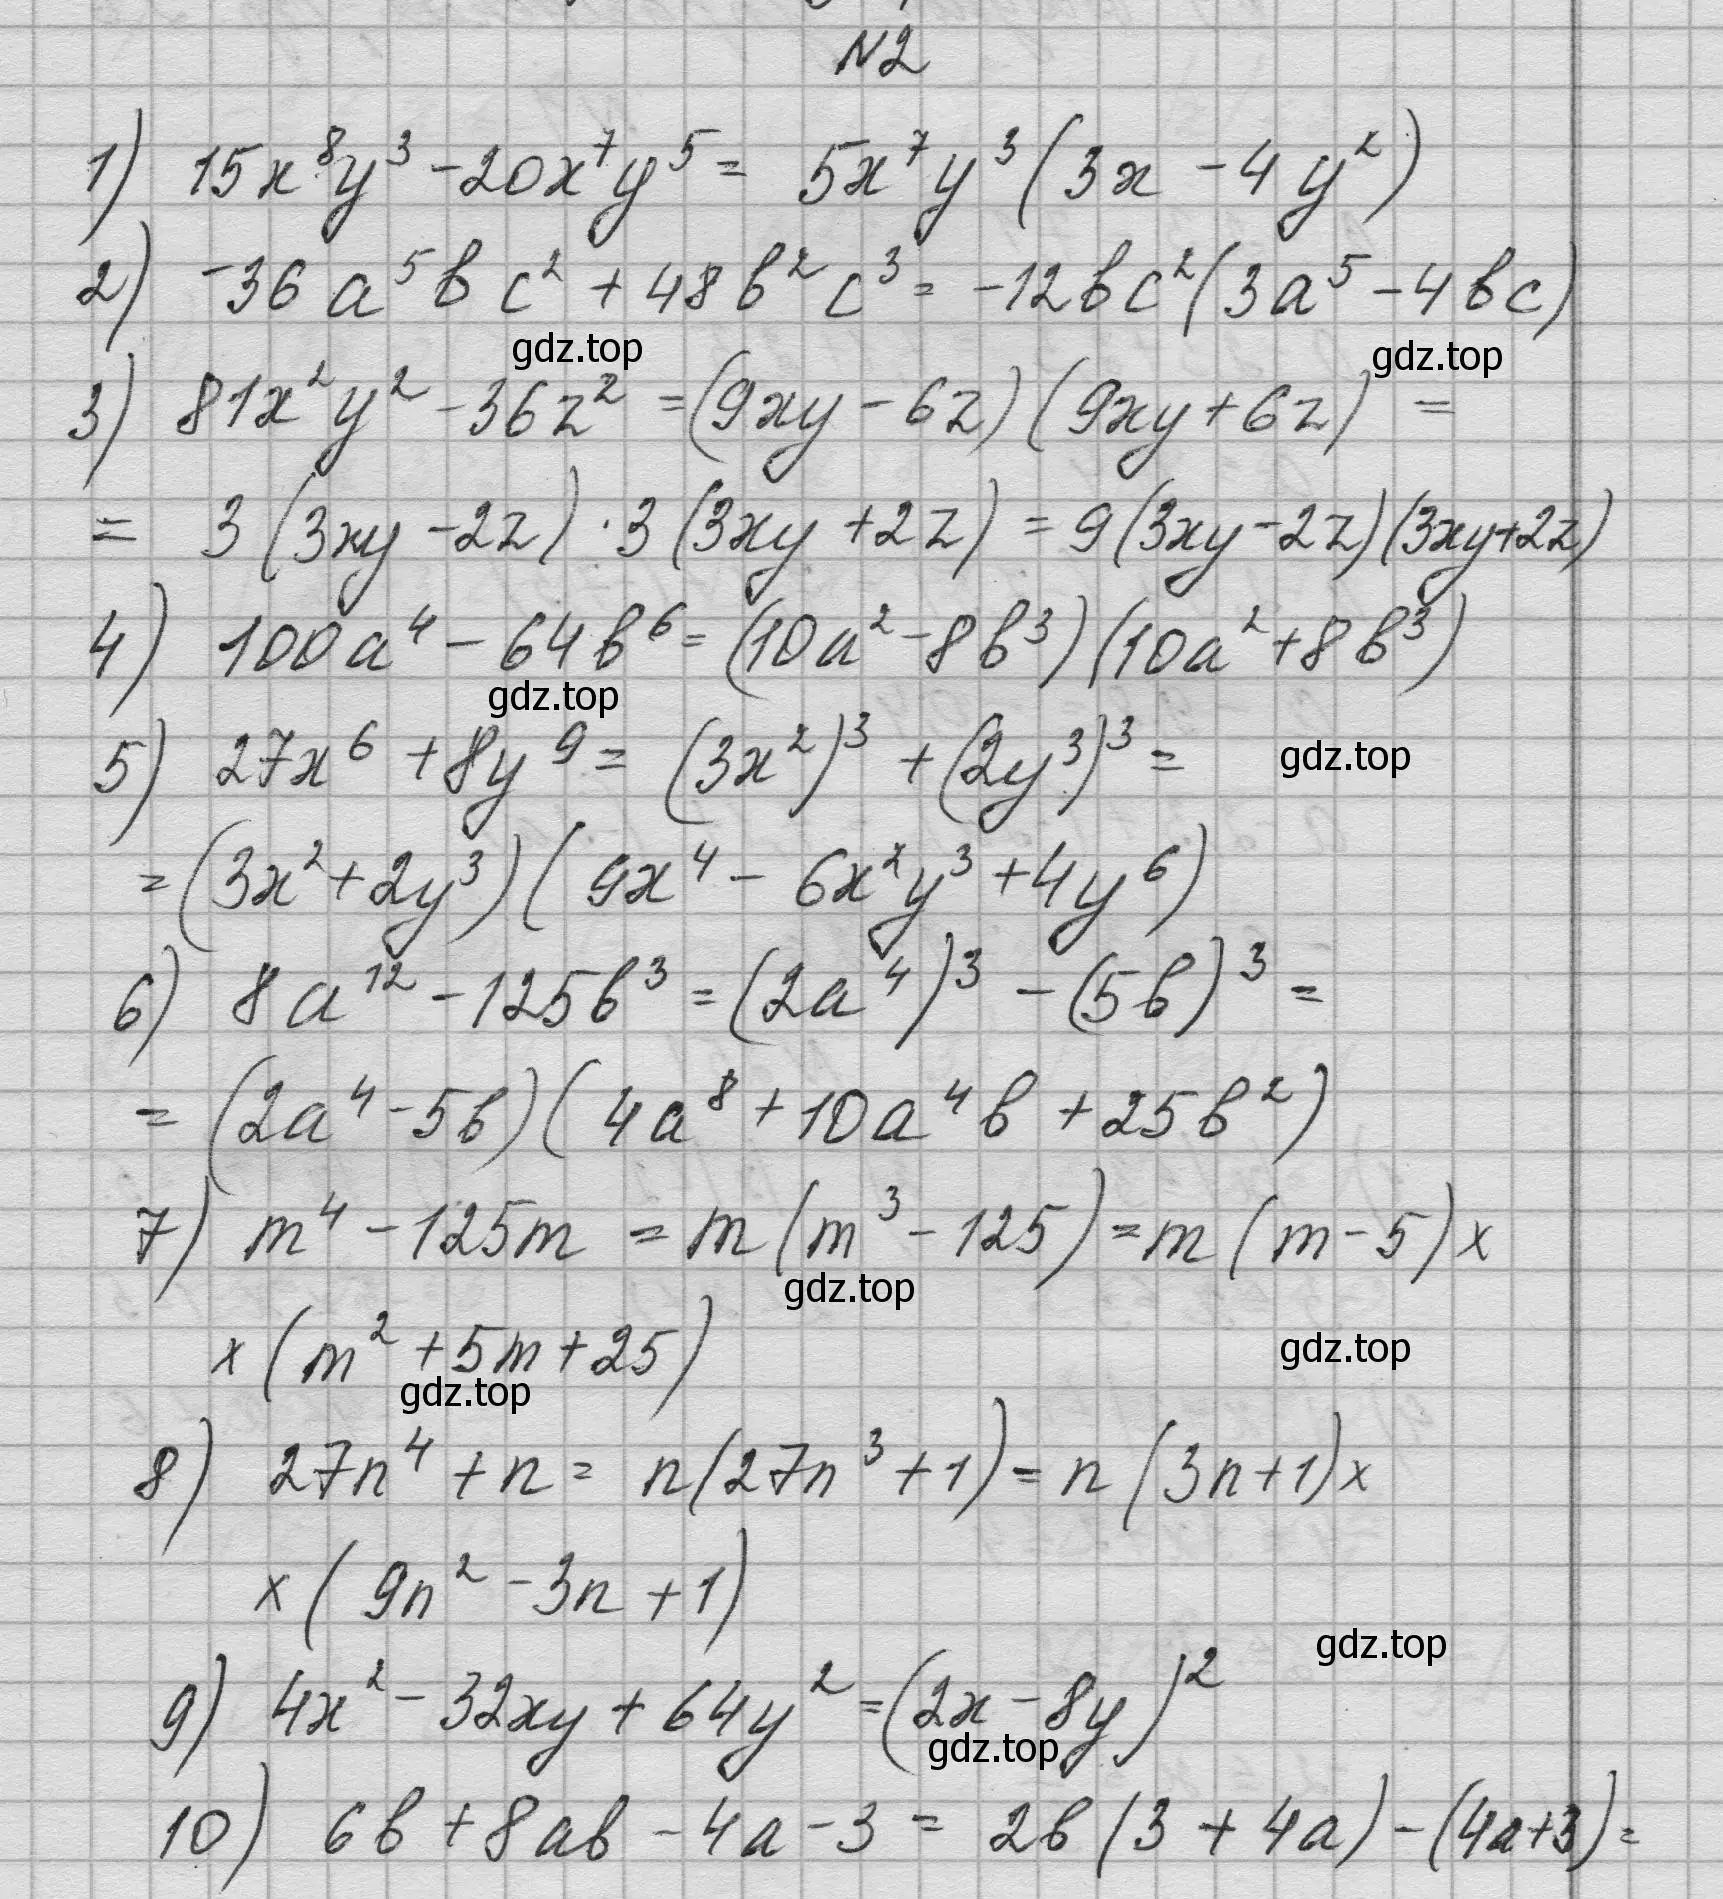 N2
1) 15x⁸y³ -20x⁷y⁵ = 5x⁷y³(3x -4y²)
2) -36a⁵bc² + 48b²c³ = -12bc²(3a⁵ -4bc)
gdz.top
gdz.top
3) 81x²y² -36z² = (9xy - 6z)(9xy + 6z) =
= 3(3xy -2z)·3(3xy +2z) = 9(3xy-2z)(3xy+2z)
4) 100a⁴ - 64b⁶ = (10a² -8b³)(10a² +8b³)
gdz.top
5) 27x⁶ +8y⁹ = (3x²)³ + (2y³)³ =
gdz.top
= (3x² +2y³)(9x⁴ - 6x²y³ +4y⁶)
6) 8a¹² -125b³ = (2a⁴)³ - (5b)³ =
= (2a⁴ -5b)(4a⁸ +10a⁴b +25b²)
7) m⁴ -125m = m(m³ -125) = m(m-5)×
gdz.top
×(m² +5m +25)
gdz.top
gdz.top
8) 27n⁴ + n = n(27n³ +1) = n(3n+1)×
×(9n² -3n +1)
gdz.top
9) 4x² - 32xy + 64y² = (2x - 8y)²
gdz.top
10) 6b + 8ab - 4a - 3 = 2b(3 + 4a) - (4a+3) =